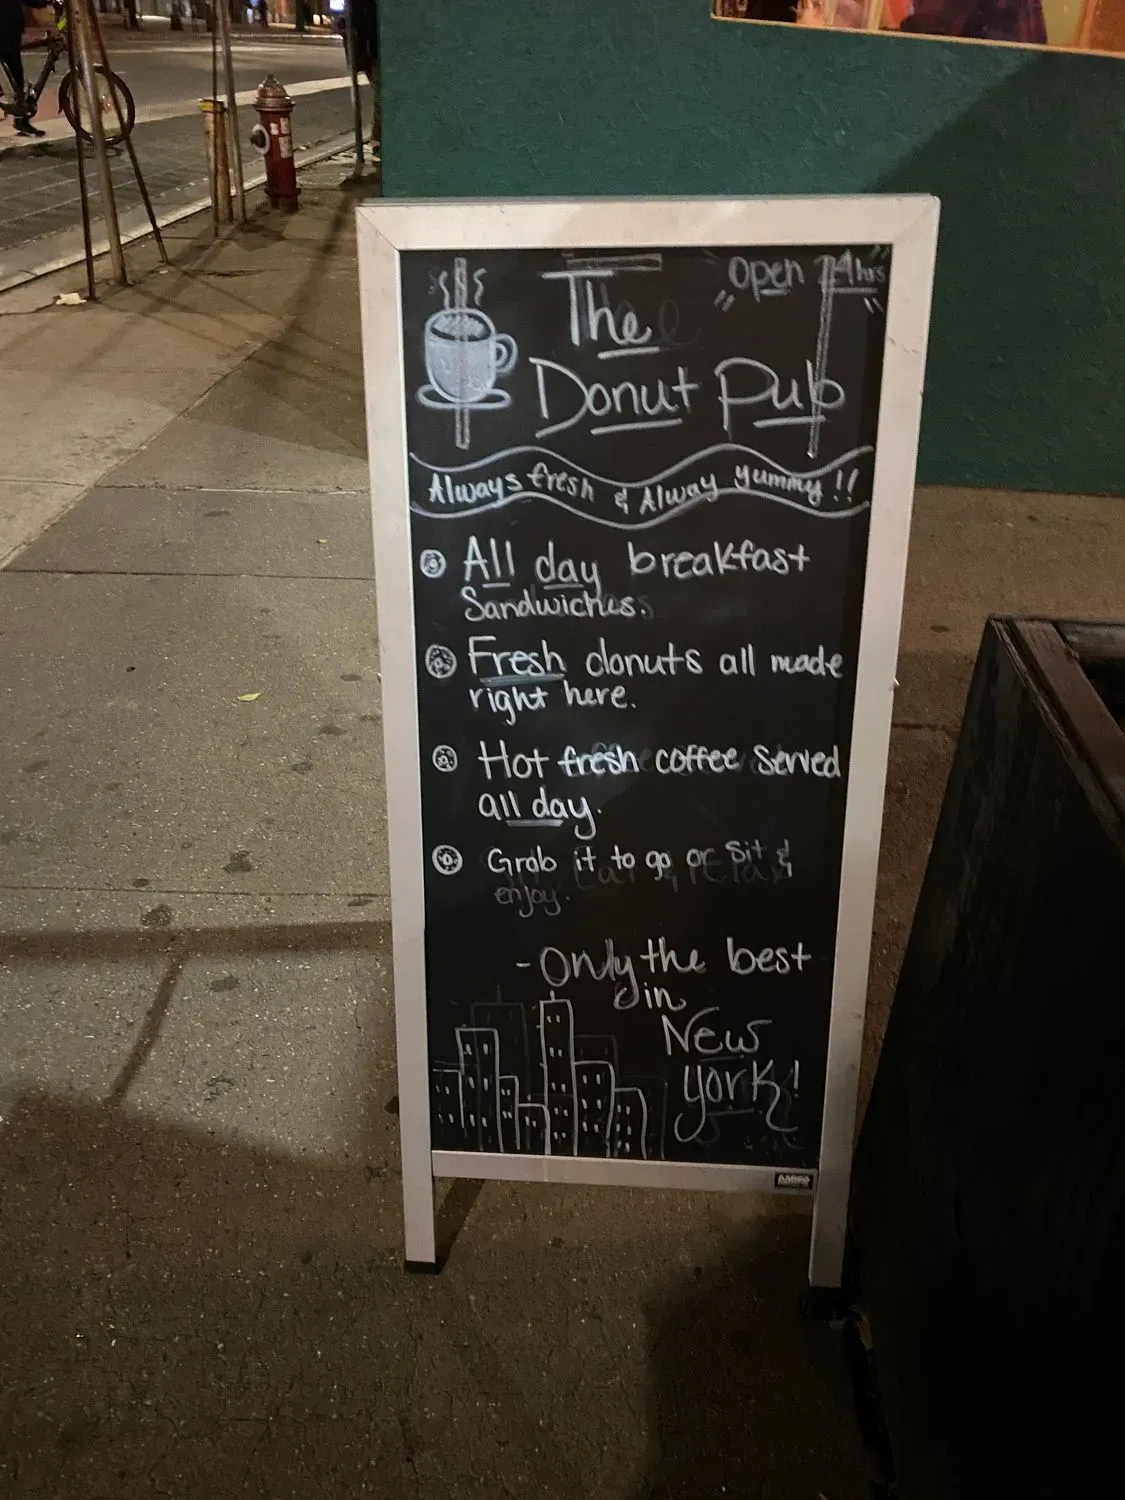 "Open 24hrs"
The
Donut Pub
Always fresh & Alway yummy!!
All day breakfast
Sandwiches.
Fresh donuts all made
right here.
Hot fresh coffee served
all day.
Grab it to go or sit &
enjoy.
- Only the best
in
New
York!